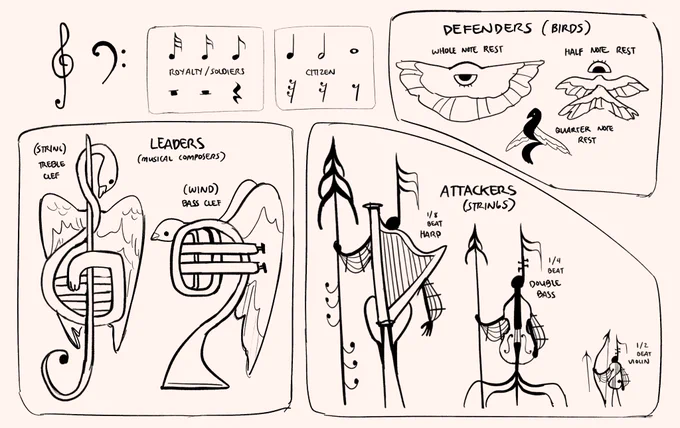 ROYALTY/SOLDIERS
CITIZEN
DEFENDERS (BIRDS)
WHOLE NOTE REST
HALF NOTE REST
QUARTER NOTE
REST
(STRING)
TREBLE
CLEF
LEADERS
(MUSICAL COMPOSERS)
(WIND)
BASS CLEF
ATTACKERS
(STRINGS)
1/8
BEAT
HARP
1/4
BEAT
DOUBLE
BASS
1/2
BEAT
VIOLIN